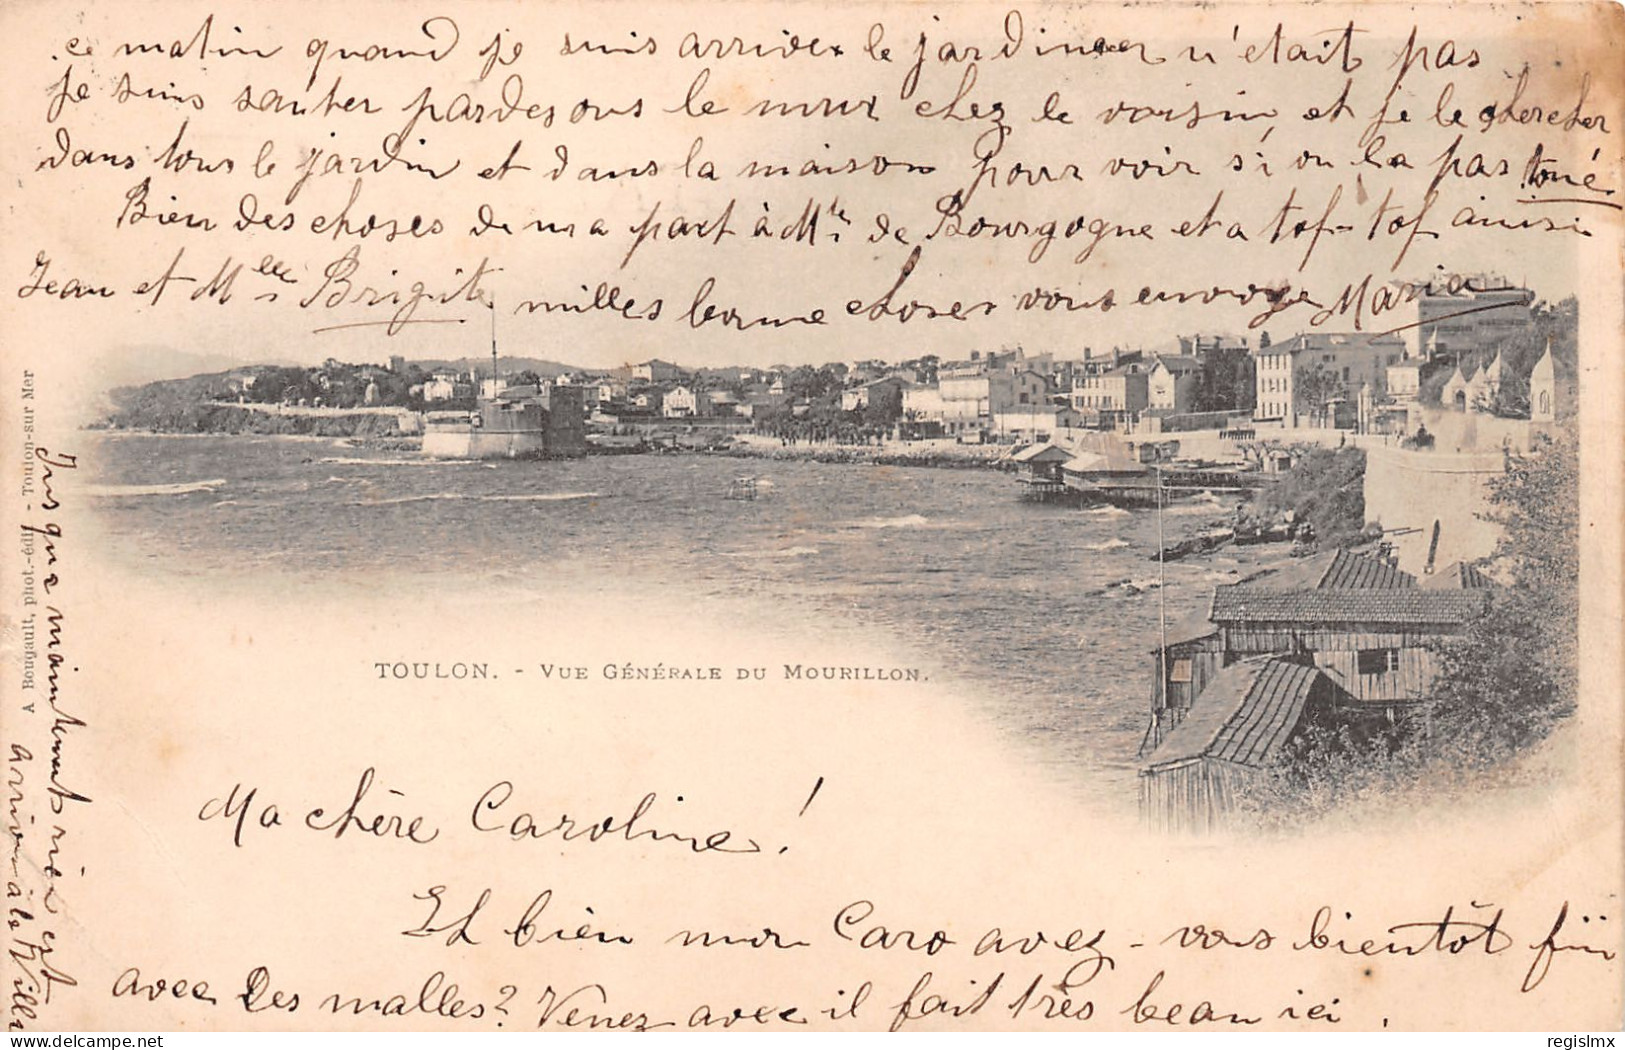 ce matin quand je suis arriver le jardinier n'etait pas
je suis sauter pardesous le mur chez le voisin, et je le chercher
dans tous le jardin et dans la maison pour voir si on la pas tué.
Bien des choses de ma part à Mr de Bourgogne et a tof-tof ainisi
Jean et Mlle Brigite milles bonne choses vous envoye Maria
A Bougault, phot.-édit - Toulon-sur Mer
Jusqua maintenent rien est
arriver à la Villa
TOULON. - VUE GÉNÉRALE DU MOURILLON.
Ma chère Caroline!
Et bien mon Caro avez-vous bientôt fini
avec les malles? Venez avec il fait très beau ici.
delcampe.net
regislmx